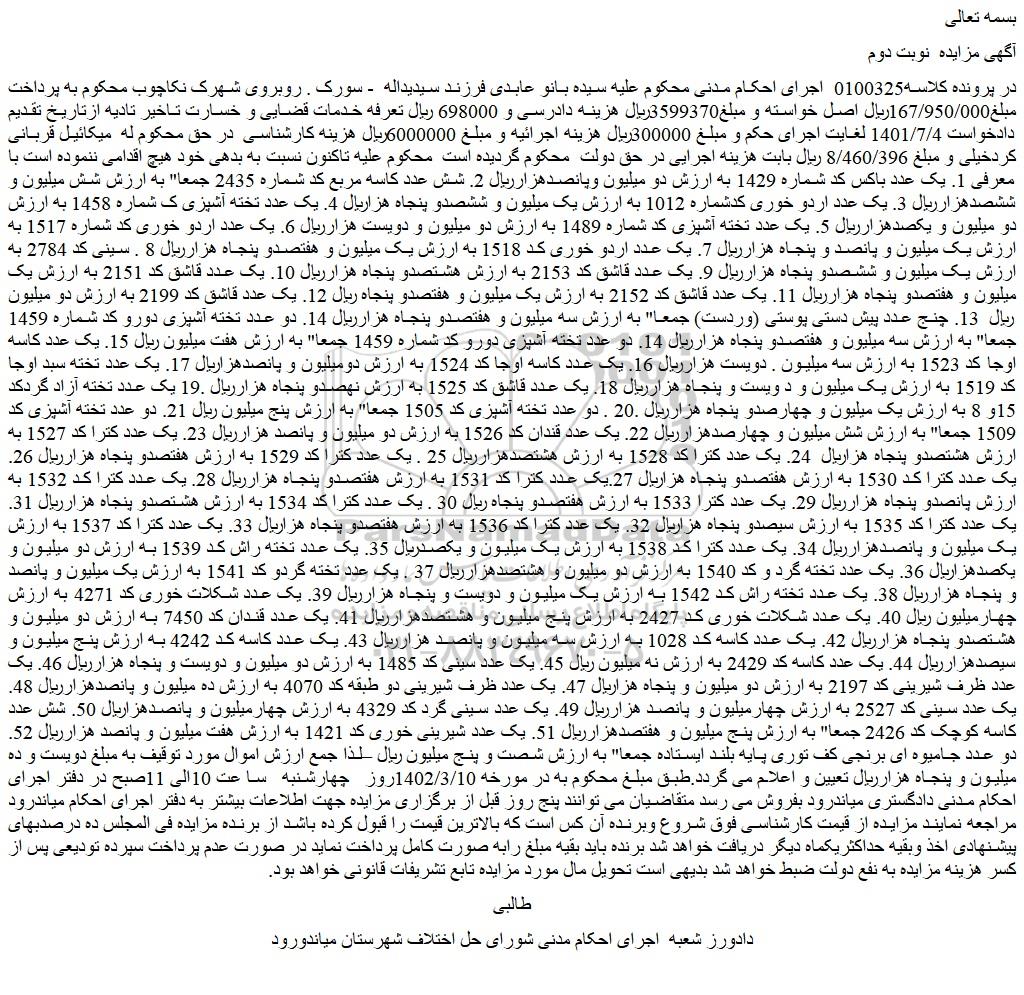 بسمه تعالی
آگهی مزایده  نوبت دوم
در پرونده کلاسه0100325  اجرای احکام مدنی محکوم علیه سیده بانو عابدی فرزند سیدیداله  - سورک . روبروی شهرک نکاچوب محکوم به پرداخت
مبلغ167/950/000ریال اصل خواسته و مبلغ3599370ریال هزینه دادرسی و 698000 ریال تعرفه خدمات قضایی و خسارت تاخیر تادیه ازتاریخ تقدیم
دادخواست 1401/7/4 لغایت اجرای حکم و مبلغ 300000ریال هزینه اجرائیه و مبلغ 6000000ریال هزینه کارشناسی  در حق محکوم له  میکائیل قربانی
کردخیلی و مبلغ 8/460/396 ریال بابت هزینه اجرایی در حق دولت  محکوم گردیده است  محکوم علیه تاکنون نسبت به بدهی خود هیچ اقدامی ننموده است با
معرفی 1. یک عدد باکس کد شماره 1429 به ارزش دو میلیون وپانصدهزارریال 2. شش عدد کاسه مربع کد شماره 2435 جمعا" به ارزش شش میلیون و
ششصدهزارریال 3. یک عدد اردو خوری کدشماره 1012 به ارزش یک میلیون و ششصدو پنجاه هزاریال 4. یک عدد تخته آشپزی ک شماره 1458 به ارزش
دو میلیون و یکصدهزارریال 5. یک عدد تخته آشپزی کد شماره 1489 به ارزش دو میلیون و دویست هزارریال 6. یک عدد اردو خوری کد شماره 1517 به
ارزش یک میلیون و پانصد و پنجاه هزارریال 7. یک عدد اردو خوری کد 1518 به ارزش یک میلیون و هفتصدو پنجاه هزارریال 8 . سینی کد 2784 به
ارزش یک میلیون و ششصدو پنجاه هزارریال 9. یک عدد قاشق کد 2153 به ارزش هشتصدو پنجاه هزارریال 10. یک عدد قاشق کد 2151 به ارزش یک
میلیون و هفتصدو پنجاه هزارریال 11. یک عدد قاشق کد 2152 به ارزش یک میلیون و هفتصدو پنجاه ریال 12. یک عدد قاشق کد 2199 به ارزش دو میلیون
ریال  13. چنج عدد پیش دستی پوستی (وردست) جمعا" به ارزش سه میلیون و هفتصدو پنجاه هزارریال 14. دو عدد تخته آشپزی دورو کد شماره 1459
جمعا" به ارزش سه میلیون و هفتصدو پنجاه هزارریال 14. دو عدد تخته آشپزی دورو کد شماره 1459 جمعا" به ارزش هفت میلیون ریال 15. یک عدد کاسه
اوجا کد 1523 به ارزش سه میلیون . دویست هزارریال 16. یک عدد کاسه اوجا کد 1524 به ارزش دومیلیون و پانصدهزاریال 17. یک عدد تخته سبد اوجا
کد 1519 به ارزش یک میلیون و د ویست و پنجاه هزارریال 18. یک عدد قاشق کد 1525 به ارزش نهصدو پنجاه هزارریال .19 یک عدد تخته آزاد گردکد
15و 8 به ارزش یک میلیون و چهارصدو پنجاه هزارریال .20 . دو عدد تخته آشپزی کد 1505 جمعا" به ارزش پنج میلیون ریال 21. دو عدد تخته آشپزی کد
1509 جمعا" به ارزش شش میلیون و چهارصدهزارریال 22. یک عدد قندان کد 1526 به ارزش دو میلیون و پانصد هزارریال 23. یک عدد کترا کد 1527 به
ارزش هشتصدو پنجاه هزاریال  24. یک عدد کترا کد 1528 به ارزش هشتصدهزارریال 25 . یک عدد کترا کد 1529 به ارزش هفتصدو پنجاه هزارریال 26.
یک عدد کترا کد 1530 به ارزش هفتصدو پنجاه هزاریال 27.یک عدد کترا کد 1531 به ارزش هفتصدو پنجاه هزارریال 28. یک عدد کترا کد 1532 به
ارزش پانصدو پنجاه هزارریال 29. یک عدد کترا 1533 به ارزش هفتصدو پنجاه ریال 30 . یک عدد کترا کد 1534 به ارزش هشتصدو پنجاه هزارریال 31.
یک عدد کترا کد 1535 به ارزش سیصدو پنجاه هزاریال 32. یک عدد کترا کد 1536 به ارزش هفتصدو پنجاه هزاریال 33. یک عدد کترا کد 1537 به ارزش
یک میلیون و پانصدهزارریال 34. یک عدد کترا کد 1538 به ارزش یک میلیون و یکصدریال 35. یک عدد تخته راش کد 1539 به ارزش دو میلیون و
یکصدهزاریال 36. یک عدد تخته گرد و کد 1540 به ارزش دو میلیون و هشتصدهزارریال 37 . یک عدد تخته گردو کد 1541 به ارزش یک میلیون و پانصد
و پنجاه هزاریال 38. یک عدد تخته راش کد 1542 به ارزش یک میلیون و دویست و پنجاه هزارریال 39. یک عدد شکلات خوری کد 4271 به ارزش
چهارمیلیون ریال 40. یک عدد شکلات خوری کد 2427 به ارزش پنج میلیون و هشتصدهزارریال 41. یک عدد قندان کد 7450 به ارزش دو میلیون و
هشتصدو پنجاه هزارریال 42. یک عدد کاسه کد 1028 به ارزش سه میلیون و پانصد هزارریال 43. یک عدد کاسه کد 4242 به ارزش پنج میلیون و
سیصدهزارریال 44. یک عدد کاسه کد 2429 به ارزش نه میلیون ریال 45. یک عدد سینی کد 1485 به ارزش دو میلیون و دویست و پنجاه هزارریال 46. یک
عدد ظرف شیرینی کد 2197 به ارزش دو میلیون و پنجاه هزاریال 47. یک عدد ظرف شیرینی دو طبقه کد 4070 به ارزش ده میلیون و پانصدهزارریال 48.
یک عدد سینی کد 2527 به ارزش چهارمیلیون و پانصد هزارریال 49. یک عدد سینی گرد کد 4329 به ارزش چهارمیلیون و پانصدهزاریال 50. شش عدد
کاسه کوچک کد 2426 جمعا" به ارزش پنج میلیون و هفتصدهزارریال 51. یک عدد شیرینی خوری کد 1421 به ارزش هفت میلیون و پانصد هزارریال 52.
دو عدد جامیوه ای برنجی کف توری پایه بلند ایستاده جمعا" به ارزش شصت و پنج میلیون ریال –لذا جمع ارزش اموال مورد توقیف به مبلغ دویست و ده
میلیون و پنجاه هزارریال تعیین و اعلام می گردد.طبق مبلغ محکوم به در مورخه 1402/3/10روز   چهارشنبه   سا عت 10الی 11صبح در دفتر اجرای
احکام مدنی دادگستری میاندرود بفروش می رسد متقاضیان می توانند پنج روز قبل از برگزاری مزایده جهت اطلاعات بیشتر به دفتر اجرای احکام میاندرود
مراجعه نمایند مزایده از قیمت کارشناسی فوق شروع وبرنده آن کس است که بالاترین قیمت را قبول کرده باشد از برنده مزایده فی المجلس ده درصدبهای
پیشنهادی اخذ وبقیه حداکثریکماه دیگر دریافت خواهد شد برنده باید بقیه مبلغ رابه صورت کامل پرداخت نماید در صورت عدم پرداخت سپرده تودیعی پس از
کسر هزینه مزایده به نفع دولت ضبط خواهد شد بدیهی است تحویل مال مورد مزایده تابع تشریفات قانونی خواهد بود.
طالبی
دادورز شعبه  اجرای احکام مدنی شورای حل اختلاف شهرستان میاندورود
ParsNamadData
پایگاه اطلاع رسانی مناقصه و مزایده
۰۲۱-۸۸۳۴۹۶۷۰-۵